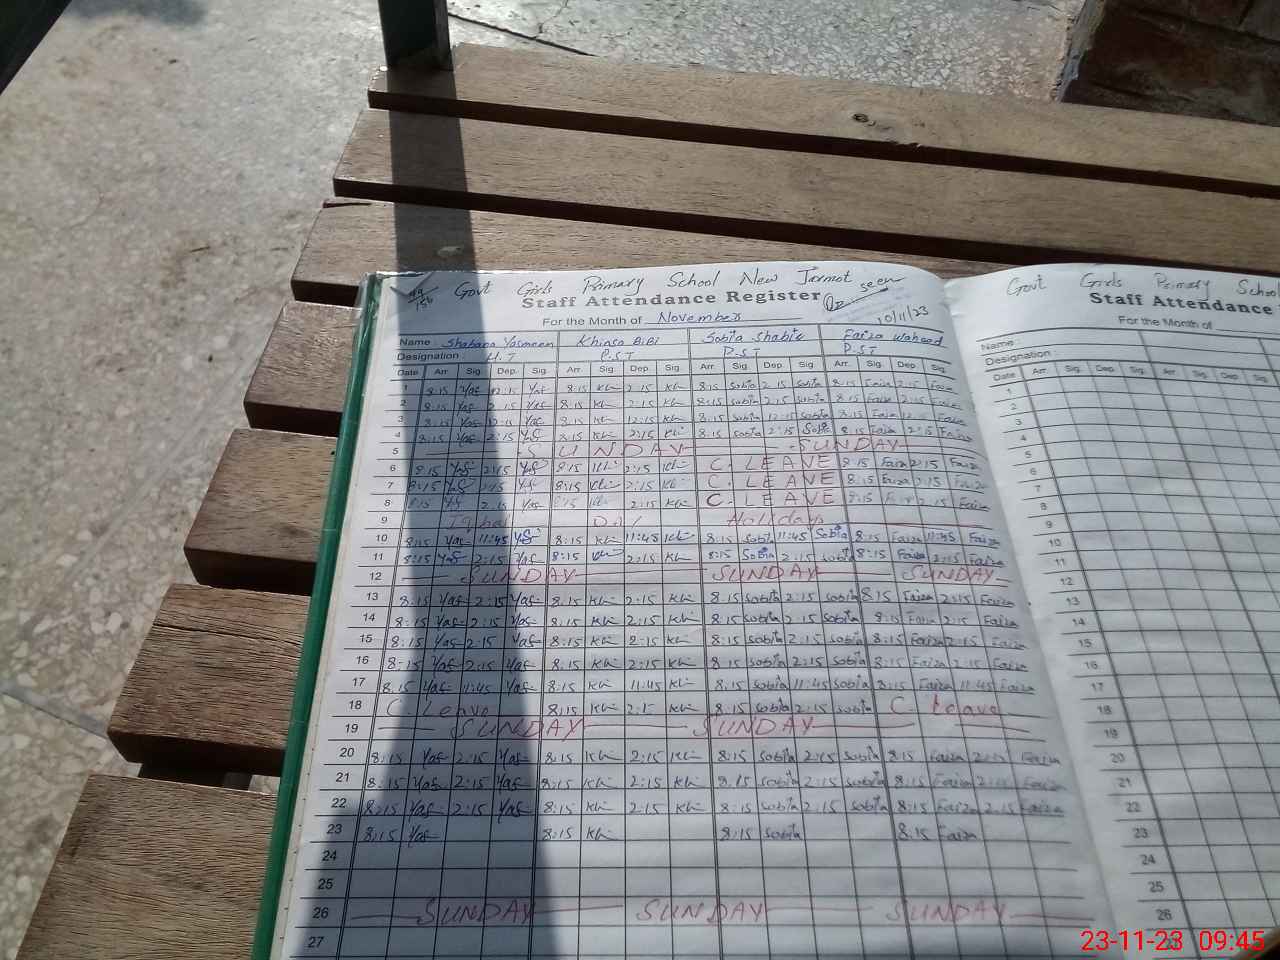 Govt Girls Primary School New Jarmot seen
Staff Attendance Register
For the Month of November 10/11/23
Name : Shabana Yasmeen Khinsa BiBi Sobia Shabir Faiza Waheed
Designation : H.T P.S.T P.S.T P.S.T
Date Arr. Sig. Dep. Sig. Arr. Sig. Dep. Sig. Arr. Sig. Dep. Sig. Arr. Sig. Dep. Sig.
1 8:15 Yas 12:15 Yas 8:15 Kh 2:15 Kh 8:15 Sobia 2:15 Sobia 8:15 Faiza 2:15 Faiza
2 8:15 Yas 2:15 Yas 8:15 Kh 2:15 Kh 8:15 Sobia 2:15 Sobia 8:15 Faiza 2:15 Faiza
3 8:15 Yas 12:15 Yas 8:15 Kh 12:15 Kh 8:15 Sobia 12:15 Sobia 8:15 Faiza 12: Faiza
4 8:15 Yas 2:15 Yas 8:15 Kh 2:15 Kh 8:15 Sobia 2:15 Sobia 8:15 Faiza 2:15 Faiza
5 SUNDAY SUNDAY
6 8:15 Yas 2:15 Yas 8:15 Kh 2:15 Kh C. LEAVE 8:15 Faiza 2:15 Faiza
7 8:15 Yas 2:15 Yas 8:15 Kh 2:15 Kh C. LEAVE 8:15 Faiza 2:15 Faiza
8 8:15 Yas 2:15 Yas 8:15 Kh 2:15 Kh C. LEAVE 8:15 2:15 Faiza
9 Iqbal Day Holidays
10 8:15 Yas 11:45 Yas 8:15 Kh 11:45 Kh 8:15 Sobia 11:45 Sobia 8:15 Faiza 11:45 Faiza
11 8:15 Yas 2:15 Yas 8:15 Kh 2:15 Kh 8:15 Sobia 2:15 Sobia 8:15 Faiza 2:15 Faiza
12 SUNDAY SUNDAY SUNDAY
13 8:15 Yas 2:15 Yas 8:15 Kh 2:15 Kh 8:15 Sobia 2:15 Sobia 8:15 Faiza 2:15 Faiza
14 8:15 Yas 2:15 Yas 8:15 Kh 2:15 Kh 8:15 Sobia 2:15 Sobia 8:15 Faiza 2:15 Faiza
15 8:15 Yas 2:15 Yas 8:15 Kh 2:15 Kh 8:15 Sobia 2:15 Sobia 8:15 Faiza 2:15 Faiza
16 8:15 Yas 2:15 Yas 8:15 Kh 2:15 Kh 8:15 Sobia 2:15 Sobia 8:15 Faiza 2:15 Faiza
17 8:15 Yas 11:45 Yas 8:15 Kh 11:45 Kh 8:15 Sobia 11:45 Sobia 8:15 Faiza 11:45 Faiza
18 C. Leave 8:15 Kh 2:15 Kh 8:15 Sobia 2:15 Sobia C. Leave
19 SUNDAY SUNDAY
20 8:15 Yas 2:15 Yas 8:15 Kh 2:15 Kh 8:15 Sobia 2:15 Sobia 8:15 Faiza 2:15 Faiza
21 8:15 Yas 2:15 Yas 8:15 Kh 2:15 Kh 8:15 Sobia 2:15 Sobia 8:15 Faiza 2:15 Faiza
22 8:15 Yas 2:15 Yas 8:15 Kh 2:15 Kh 8:15 Sobia 2:15 Sobia 8:15 Faiza 2:15 Faiza
23 8:15 Yas 8:15 Kh 8:15 Sobia 8:15 Faiza
24
25
26 SUNDAY SUNDAY SUNDAY
27
Govt Girls Primary School
Staff Attendance
For the Month of
Name :
Designation :
Date Arr. Sig. Dep. Sig. Arr. Sig. Dep.
1
2
3
4
5
6
7
8
9
10
11
12
13
14
15
16
17
18
19
20
21
22
23
24
25
26
23-11-23 09:45